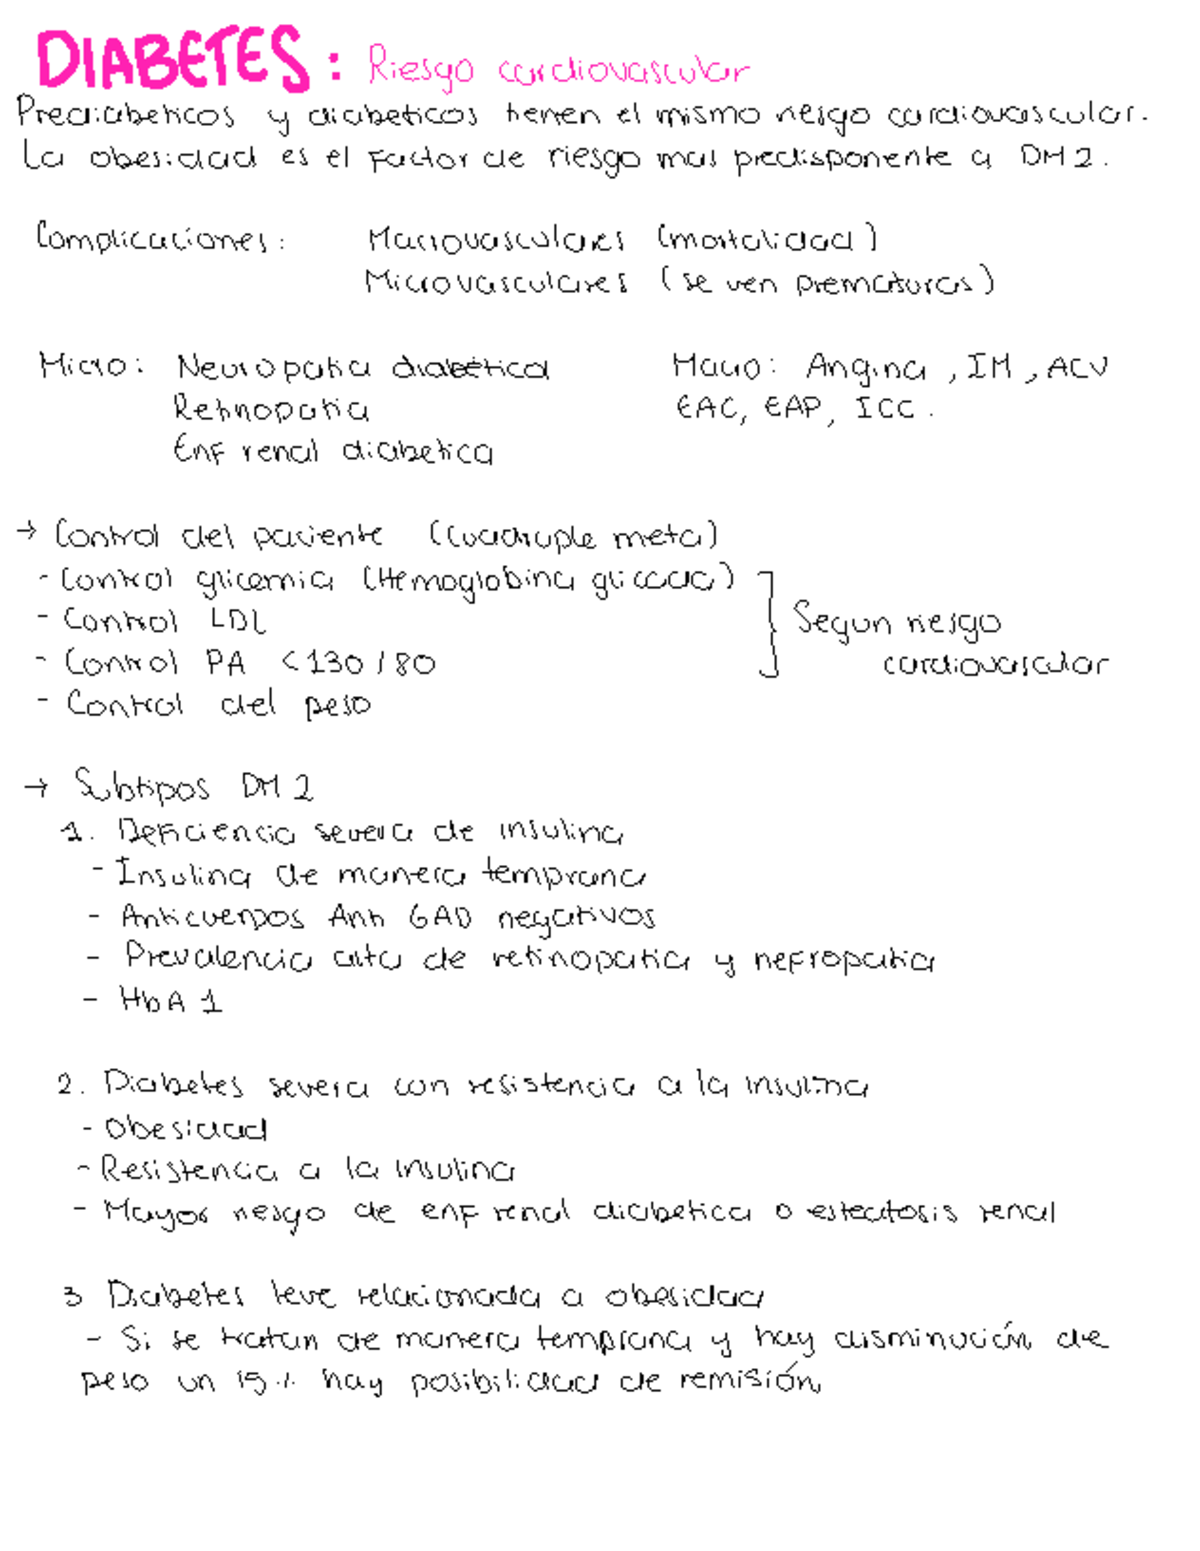 DIABETES: Riesgo cardiovascular
Prediabeticos y diabeticos tienen el mismo riesgo cardiovascular.
La obesidad es el factor de riesgo mas predisponente a DM2.
Complicaciones: Macrovasculares (mortalidad)
Microvasculares (se ven prematuras)
Micro: Neuropatia diabética Macro: Angina, IM, ACV
Retinopatia EAC, EAP, ICC.
Enf renal diabetica
→ Control del paciente (Cuadruple meta)
- Control glicemia (Hemoglobina glicada)
- Control LDL Segun riesgo
- Control PA <130/80 cardiovascular
- Control del peso
→ Subtipos DM2
1. Deficiencia severa de insulina
- Insulina de manera temprana
- Anticuerpos Anti GAD negativos
- Prevalencia alta de retinopatia y nefropatia
- HbA1
2. Diabetes severa con resistencia a la insulina
- Obesidad
- Resistencia a la insulina
- Mayor riesgo de enf renal diabetica o esteatosis renal
3 Diabetes leve relacionada a obesidad
- Si se tratan de manera temprana y hay disminución de
peso un 15% hay posibilidad de remisión,